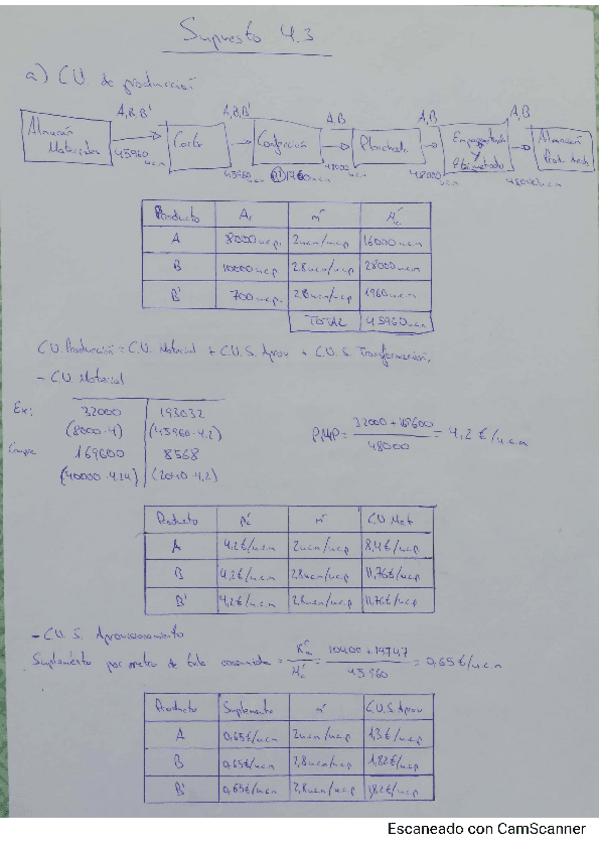 Supuesto 4.3
a) C.U. de producción
A,B,B' A,B,B' A,B A,B A,B
Almacén Materiales Corte Confección Planchado Empaquetado y Etiquetado Almacén Prod. term.
45960 u.c.m 45960 u.c.m 48000 u.c.m 48000 u.c.m 48000 u.c.m
Producto m´
A 8000 u.c.p. 2 u.c.m/u.c.p 16000 u.c.m
B 10000 u.c.p 2,8 u.c.m/u.c.p 28000 u.c.m
B' 700 u.c.p. 2,8 u.c.m/u.c.p 1960 u.c.m
TOTAL 45960 u.c.m
C.U. Producción = C.U. Material + C.U.S. Aprov + C.U.S. Transformación.
- C.U. Material
Ex: 32000 193032
(8000·4) (45960·4,2)
Compra 169600 8568
(40000·4,24) (2040·4,2)
PMP = 32000 + 169600 / 48000 = 4,2 €/u.c.m
Producto m´ C.U. Mat
A 4,2 €/u.c.m 2 u.c.m/u.c.p 8,4 €/u.c.p
B 4,2 €/u.c.m 2,8 u.c.m/u.c.p 11,76 €/u.c.p
B' 4,2 €/u.c.m 2,8 u.c.m/u.c.p 11,76 €/u.c.p
- C.U.S. Aprovisionamiento
Suplemento por metro de tela consumida = = 10400 + 19747 / 45960 = 0,65 €/u.c.m
Producto Suplemento m´ C.U.S. Aprov
A 0,65 €/u.c.m 2 u.c.m/u.c.p 1,3 €/u.c.p
B 0,65 €/u.c.m 2,8 u.c.m/u.c.p 1,82 €/u.c.p
B' 0,65 €/u.c.m 2,8 u.c.m/u.c.p 1,82 €/u.c.p
Escaneado con CamScanner